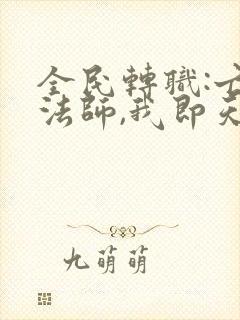 全民轉職:
法師,我即
九萌萌